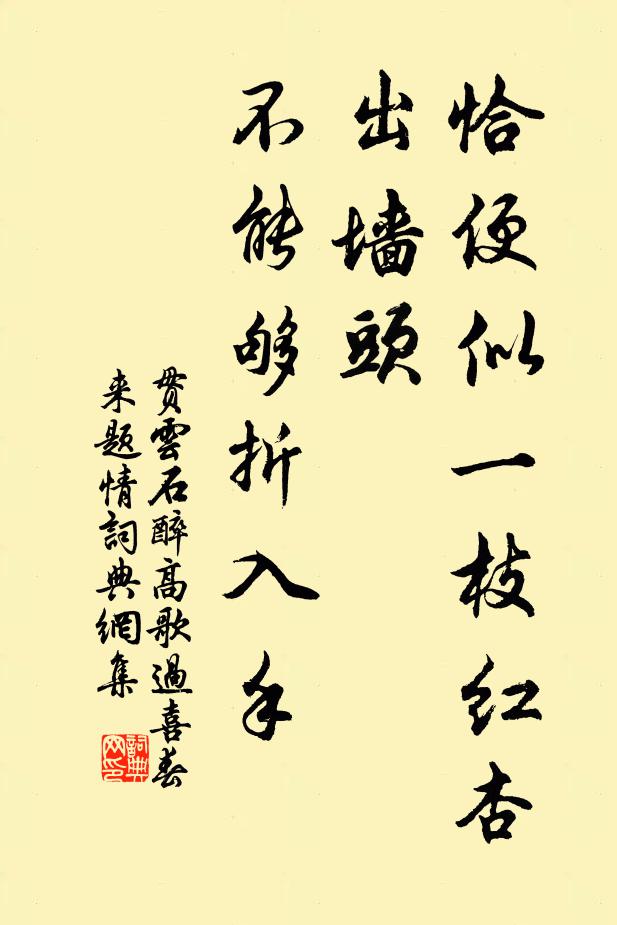 恰便似一枝红杏
出墙頭
不能够折入手
贯雲石醉高歌過喜春
来题情詞典網集
詞典
网印